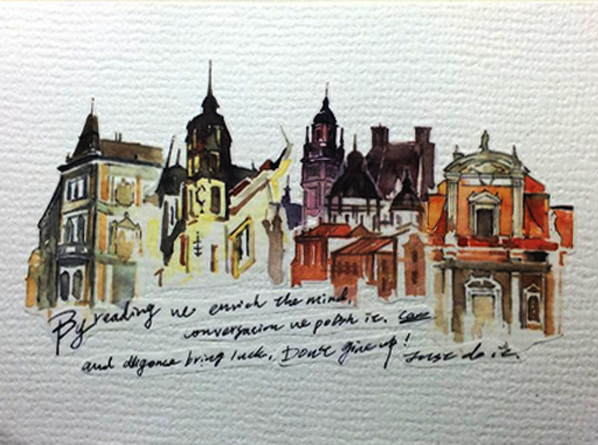 By reading we enrich the mind,
conversacion we polish it. Care
and diligence bring luck, Don't give up!
Just do it.